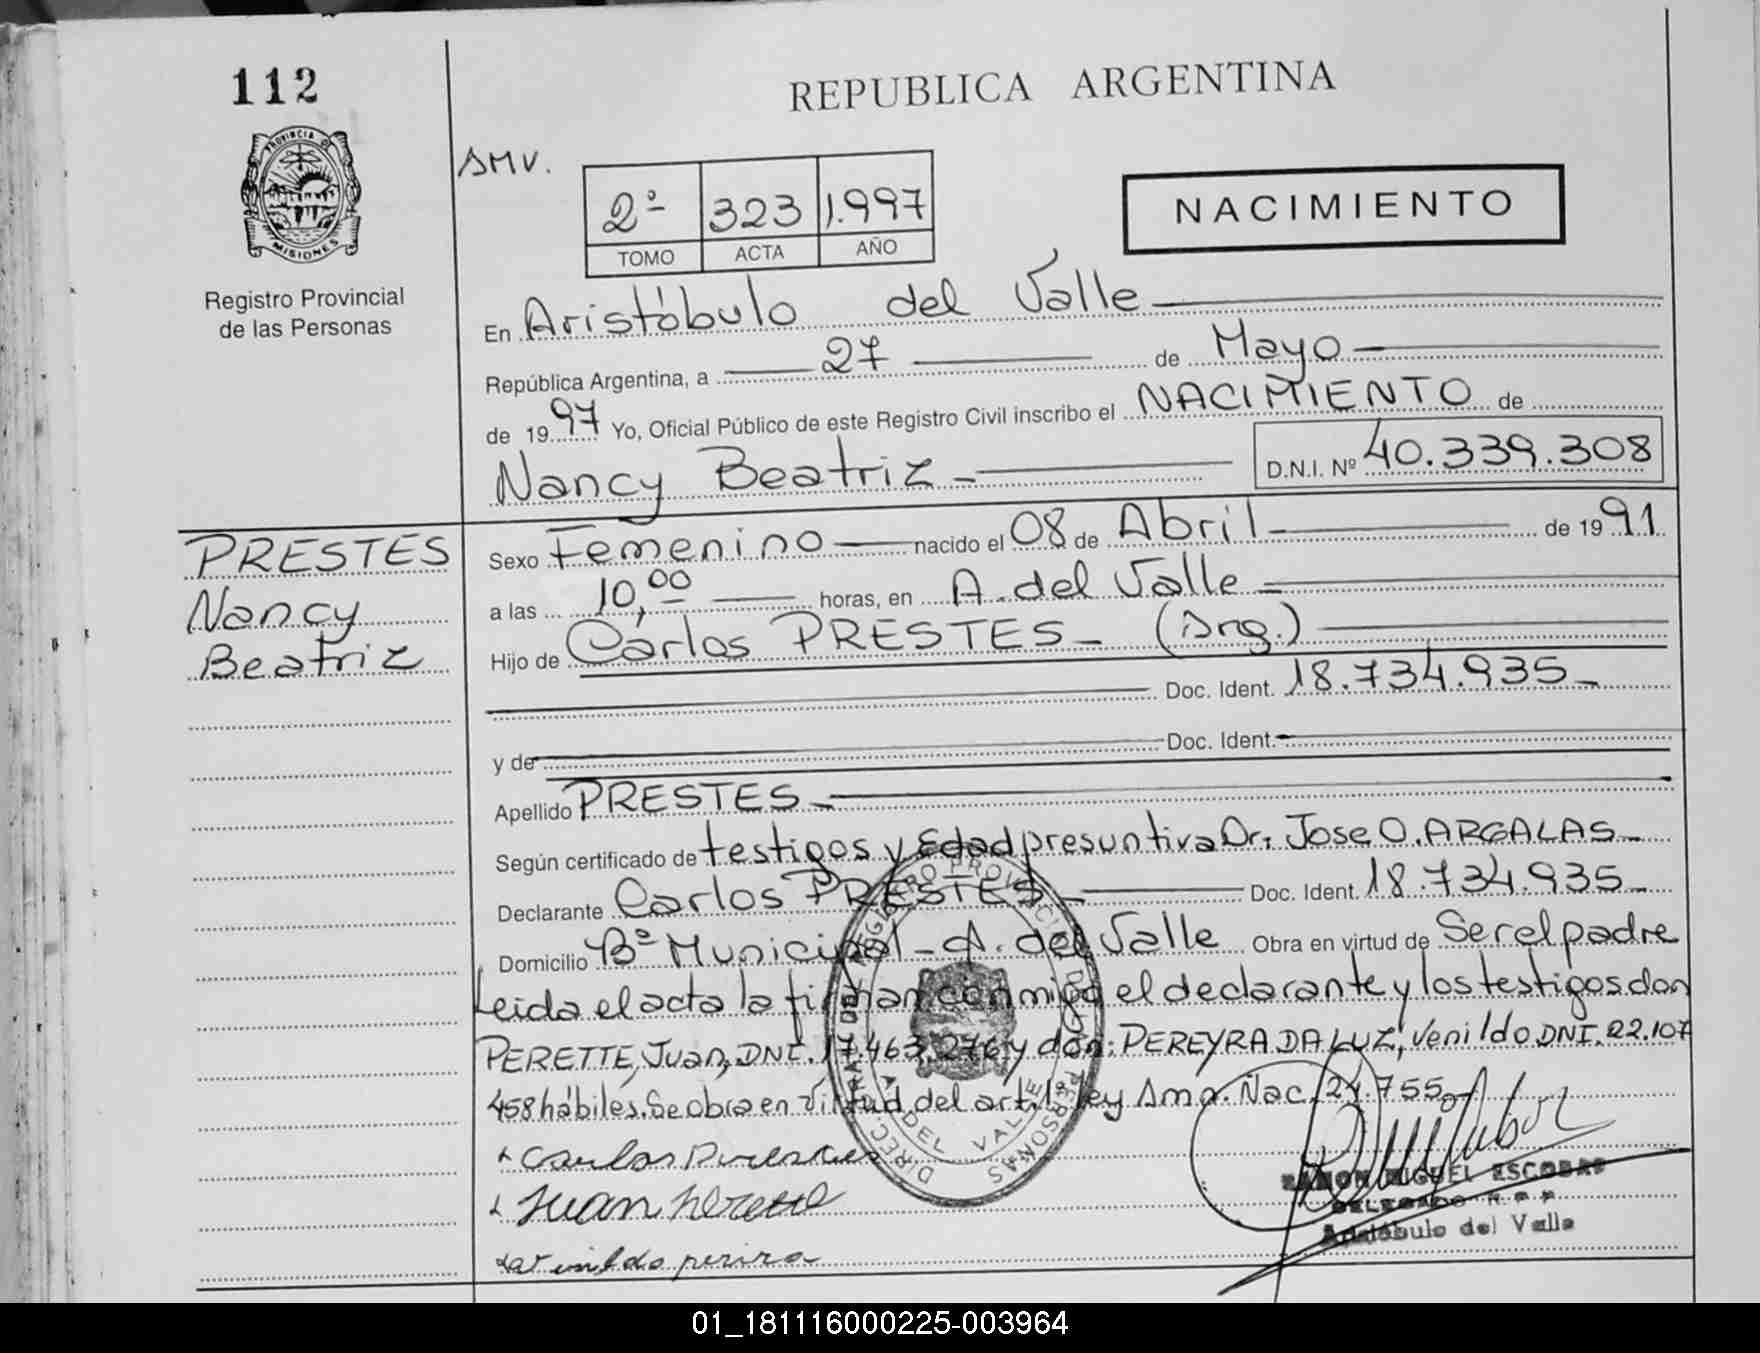 112
REPUBLICA ARGENTINA
PROVINCIA DE MISIONES
Registro Provincial
de las Personas
SMV.
2º 323 1.997
TOMO ACTA AÑO
NACIMIENTO
En Aristóbulo del Valle
República Argentina, a 27 de Mayo
de 1997 Yo, Oficial Público de este Registro Civil inscribo el NACIMIENTO de
Nancy Beatriz D.N.I. Nº 40.339.308
PRESTES
Nancy
Beatriz
Sexo Femenino nacido el 08 de Abril de 1991
a las 10,00 horas, en A. del Valle
Hijo de Carlos PRESTES (Arg.)
Doc. Ident. 18.734.935
y de Doc. Ident.
Apellido PRESTES
Según certificado de testigos y Edad presuntiva Dr. Jose O. ARGALAS
Declarante Carlos PRESTES Doc. Ident. 18.734.935
Domicilio Bº Municipal - A. del Valle Obra en virtud de Ser el padre
Leida el acta la firman conmigo el declarante y los testigos don
PERETTE, Juan, DNI. 17.463.276 y don: PEREYRA DA LUZ, Venildo DNI. 22.107
458 hábiles. Se obra en virtud del art. 1 Ley Nac. 24.755
Carlos Prestes
Juan Perette
RAMON MIGUEL ESCOBAR
DELEGADO R.P.P.
Aristóbulo del Valle
01_181116000225-003964